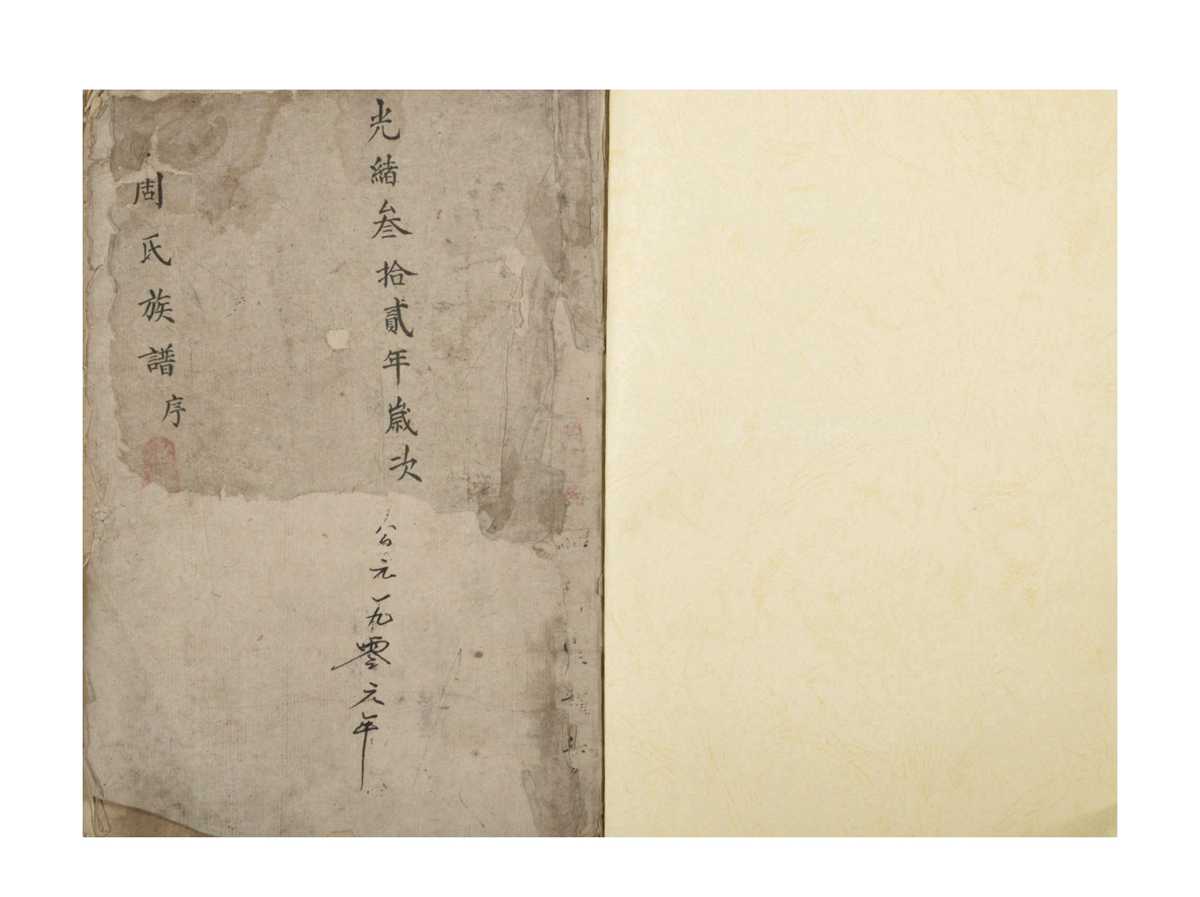 光緒叁拾貳年歲次公元一九零六年
周氏族譜序